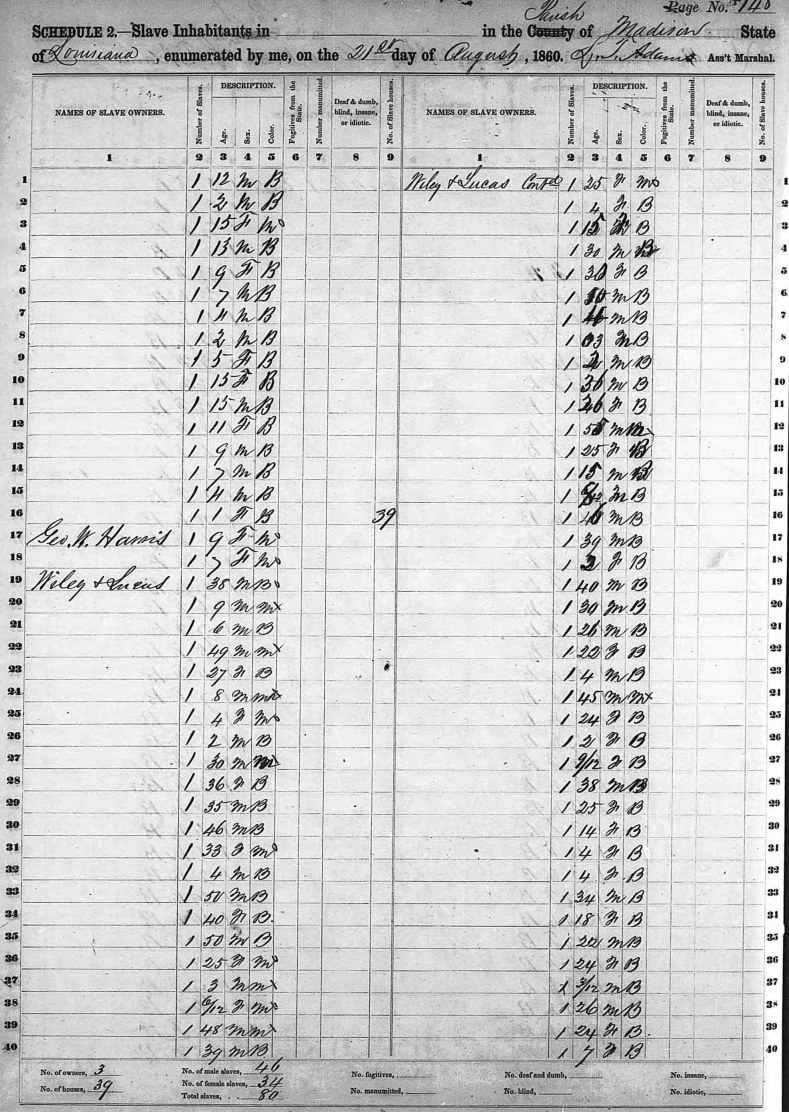 Page No. 148
SCHEDULE 2.—Slave Inhabitants in in the County Parish of Madison State
of Louisiana, enumerated by me, on the 21st day of August, 1860. Adams Ass't Marshal.
NAMES OF SLAVE OWNERS. Number of Slaves. DESCRIPTION. Age. Sex. Color. Fugitives from the State. Number manumitted. Deaf & dumb, blind, insane, or idiotic. No. of Slave houses. NAMES OF SLAVE OWNERS. Number of Slaves. DESCRIPTION. Age. Sex. Color. Fugitives from the State. Number manumitted. Deaf & dumb, blind, insane, or idiotic. No. of Slave houses.
1 2 3 4 5 6 7 8 9 1 2 3 4 5 6 7 8 9
1 1 12 M B Wiley & Lucas Contd 1 25 F 1
2 1 2 M B 1 4 F B 2
3 1 15 F Mo 1 15 B 3
4 1 13 M B 1 30 M 4
5 1 9 F B 1 30 F B 5
6 1 7 M B 1 M B 6
7 1 4 M B 1 M B 7
8 1 2 M B 1 B 8
9 1 5 F B 1 M B 9
10 1 15 F B 1 30 M B 10
11 1 15 M B 1 F B 11
12 1 11 F B 1 55 M 12
13 1 9 M B 1 25 F B 13
14 1 7 M B 1 15 M B 14
15 1 4 M B 1 B 15
16 1 1 F B 39 1 M B 16
17 Geo. W. Harris 1 9 F Mo 1 39 M B 17
18 1 7 F Mo 1 F B 18
19 Wiley & Lucus 1 38 M B 1 40 M B 19
20 1 9 M Mx 1 30 M B 20
21 1 6 M B 1 26 M B 21
22 1 49 M Mx 1 22 F B 22
23 1 27 F B 1 4 M B 23
24 1 8 M Mx 1 45 M Mx 24
25 1 4 F Mo 1 24 F B 25
26 1 2 M B 1 2 F B 26
27 1 30 M M 1 9/12 F B 27
28 1 36 F B 1 38 M B 28
29 1 35 M B 1 25 F B 29
30 1 46 M B 1 14 F B 30
31 1 33 F Mo 1 4 F B 31
32 1 4 M B 1 4 F B 32
33 1 50 M B 1 34 M B 33
34 1 40 F B 1 18 F B 34
35 1 50 M B 1 22 M B 35
36 1 25 F Mo 1 24 F B 36
37 1 3 M Mx 1 M B 37
38 1 6/12 F Mo 1 26 M B 38
39 1 48 M Mx 1 24 F B 39
40 1 39 M B 1 7 F B 40
No. of owners, 3 No. of male slaves, 46 No. fugitives, No. deaf and dumb, No. insane,
No. of houses, 39 No. of female slaves, 34 No. manumitted, No. blind, No. idiotic,
Total slaves, 80